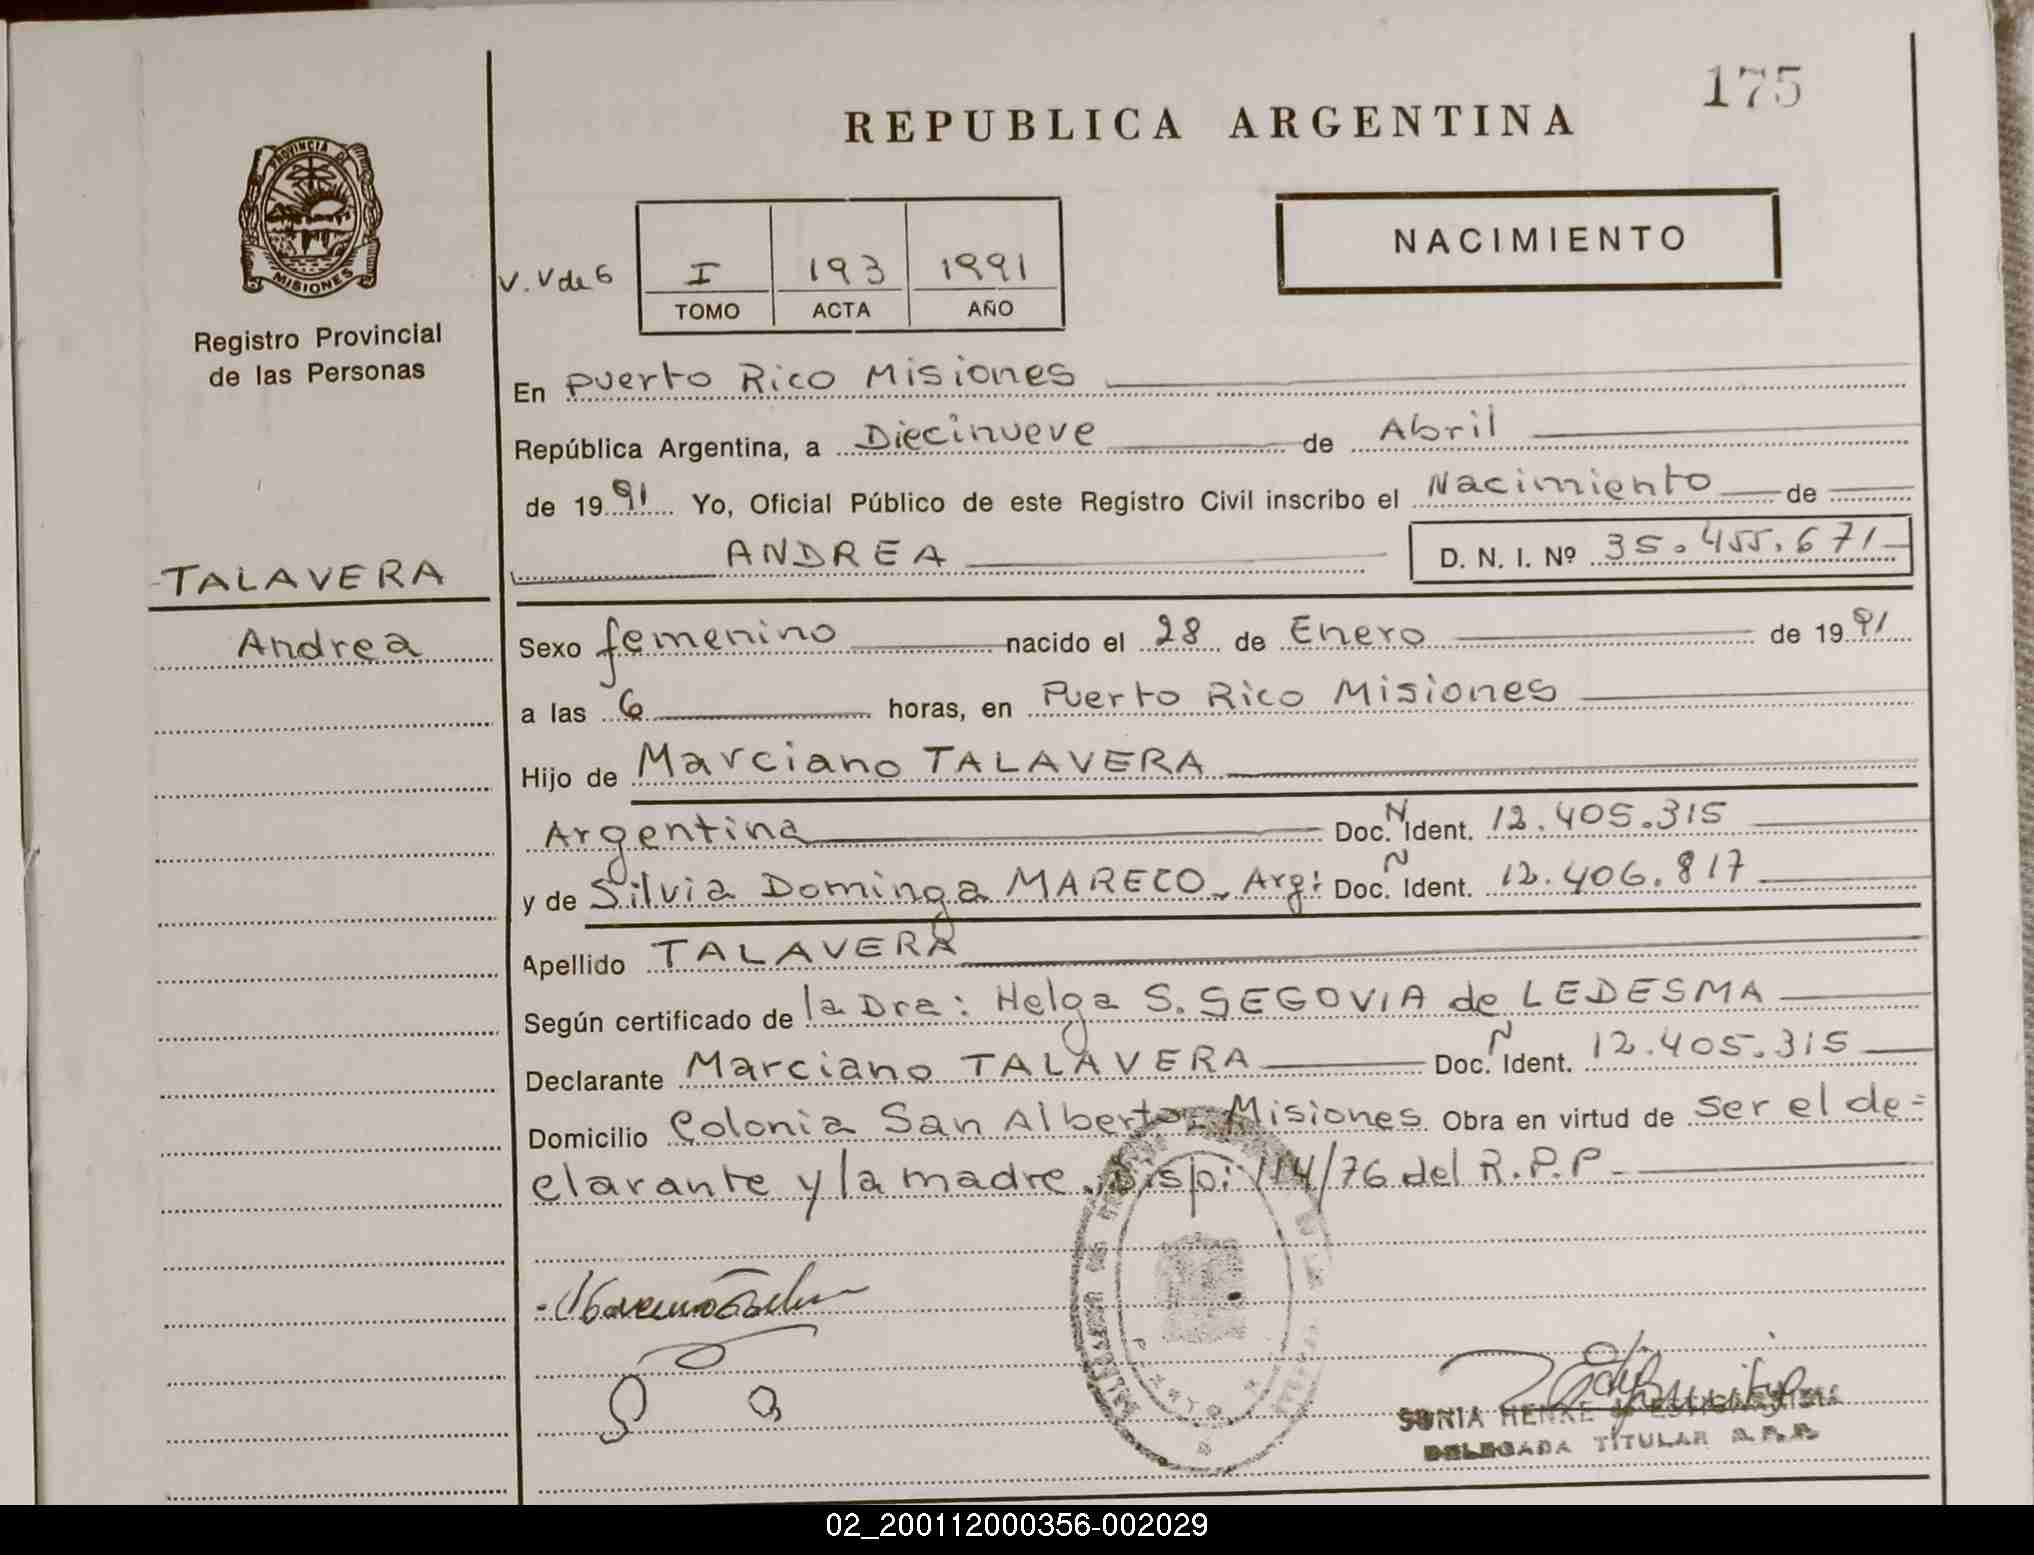 175
REPUBLICA ARGENTINA
PROVINCIA DE
MISIONES
Registro Provincial
de las Personas
NACIMIENTO
V. V de 6
I 193 1991
TOMO ACTA AÑO
En Puerto Rico Misiones
República Argentina, a Diecinueve de Abril
de 1991 Yo, Oficial Público de este Registro Civil inscribo el Nacimiento de
ANDREA D. N. I. Nº 35.455.671
TALAVERA
Andrea
Sexo femenino nacido el 28 de Enero de 1991
a las 6 horas, en Puerto Rico Misiones
Hijo de Marciano TALAVERA
Argentina Doc. N Ident. 12.405.315
y de Silvia Dominga MARECO, Arg: Doc. N Ident. 12.406.817
Apellido TALAVERA
Según certificado de la Dra: Helga S. SEGOVIA de LEDESMA
Declarante Marciano TALAVERA Doc. N Ident. 12.405.315
Domicilio Colonia San Alberto, Misiones Obra en virtud de ser el de=
clarante y la madre. Disp: 114/76 del R.P.P
SONIA HENKE
DELEGADA TITULAR R.P.P.
02_200112000356-002029